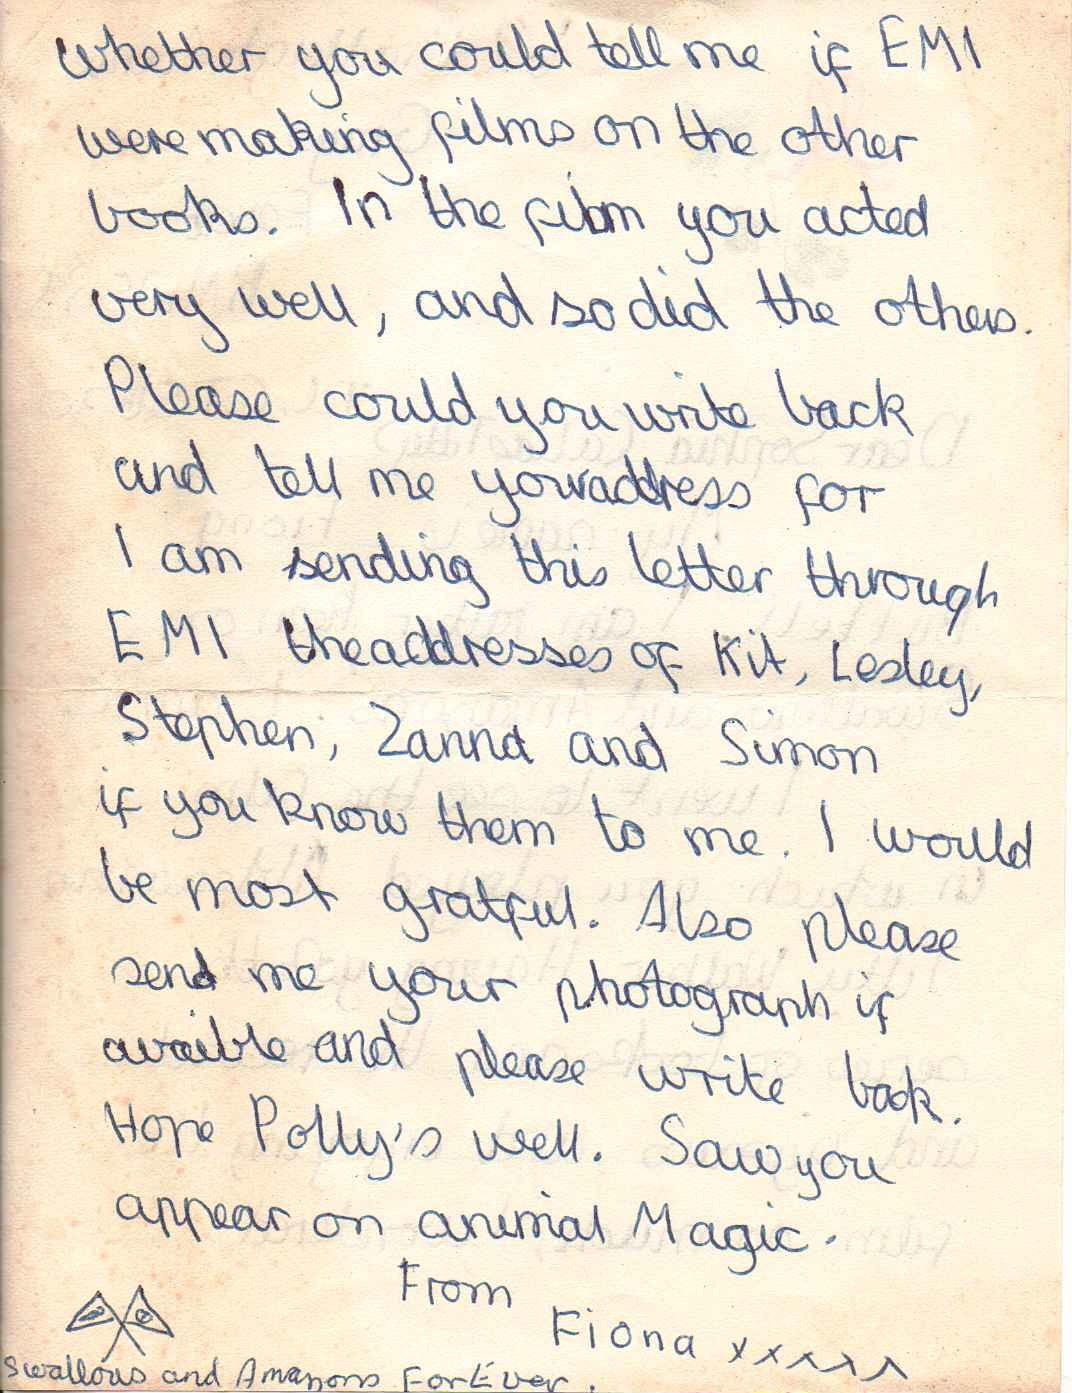 whether you could tell me if EMI
were making films on the other
books. In the film you acted
very well, and so did the others.
Please could you write back
and tell me your address for
I am sending this letter through
EMI the addresses of Kit, Lesley,
Stephen, Zanna and Simon
if you know them to me. I would
be most gratful. Also please
send me your photograph if
avaible and please write back.
Hope Polly's well. Saw you
appear on animal Magic.
From
Fiona xxxxx
Swallows and Amazons ForEver.